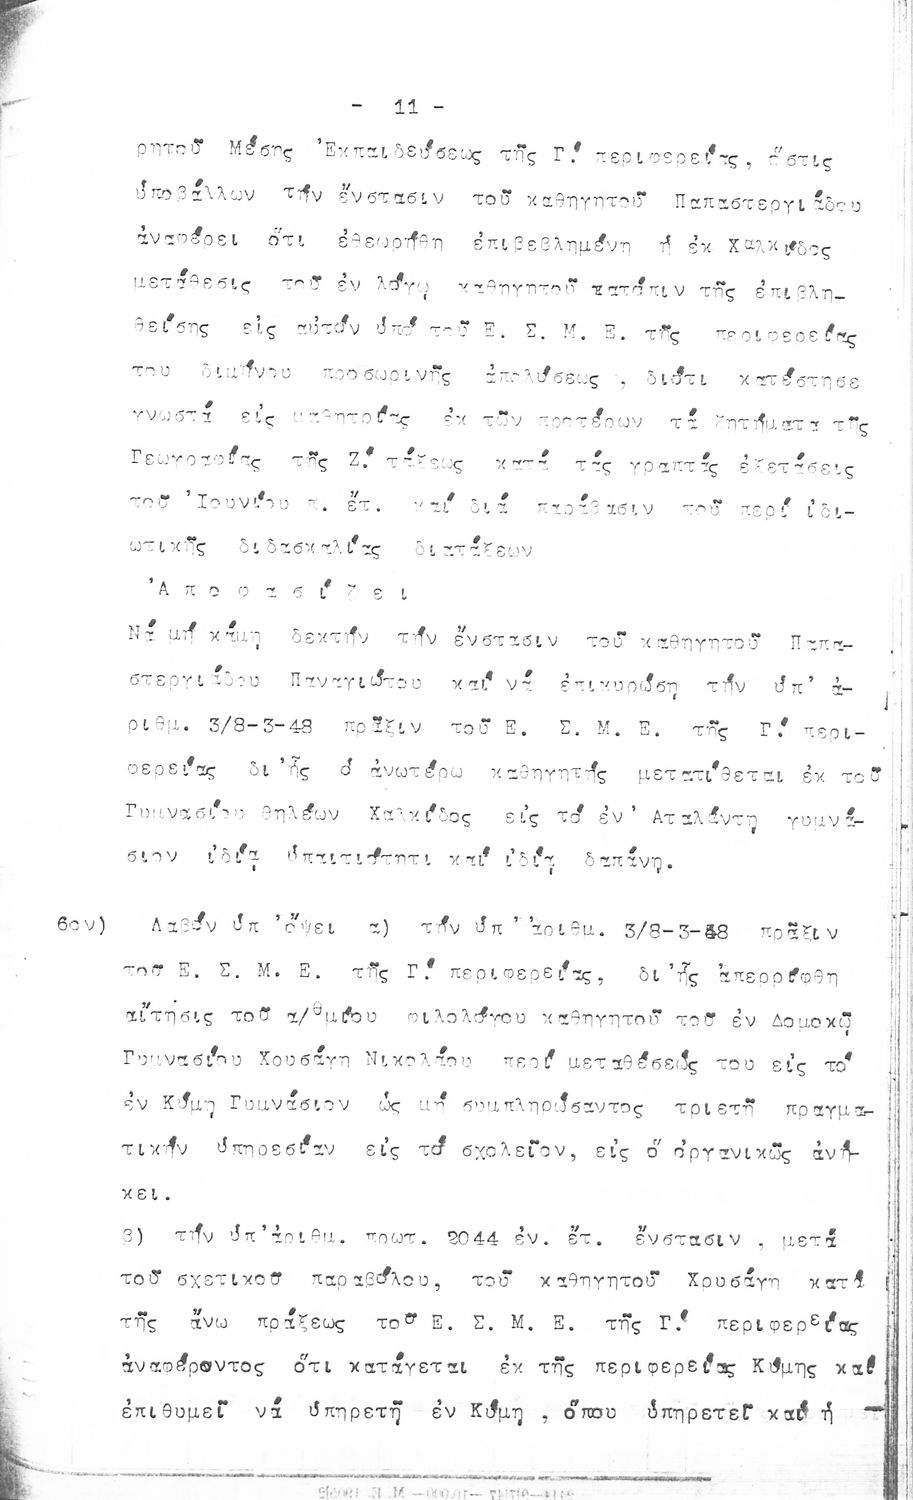 - 11 -
ρητοῦ Μέσης Ἐκπαιδεύσεως τῆς Γ.' περιφερείας, ὅστις
ὑποβάλλων τήν ἔνστασιν τοῦ καθηγητοῦ Παπαστεργιάδου
ἀναφέρει ὅτι ἐθεωρήθη ἐπιβεβλημένη ἡ ἐκ Χαλκίδος
μετάθεσις τοῦ ἐν λόγῳ καθηγητοῦ κατόπιν τῆς ἐπιβλη-
θείσης εἰς αὐτόν ὑπό τοῦ Ε. Σ. Μ. Ε. τῆς περιφερείας
του διμήνου προσωρινῆς ἀπολύσεως , διότι κατέστησε
γνωστά εἰς μαθητρίας ἐκ τῶν προτέρων τά ζητήματα τῆς
Γεωγραφίας τῆς Ζ.' τάξεως κατά τάς γραπτάς ἐξετάσεις
τοῦ Ἰουνίου π. ἔτ. καί διά παράβασιν τοῦ περί ἰδι-
ωτικῆς διδασκαλίας διατάξεων
Ἀ π ο φ α σ ί ζ ε ι
Νά μή κάμη δεκτήν τήν ἔνστασιν τοῦ καθηγητοῦ Παπα-
στεργιάδου Παναγιώτου καί νά ἐπικυρώση τήν ὑπ' ἀ-
ριθμ. 3/8-3-48 πρᾶξιν τοῦ Ε. Σ. Μ. Ε. τῆς Γ.' περι-
φερείας δι'ἧς ὁ ἀνωτέρω καθηγητής μετατίθεται ἐκ τοῦ
Γυμνασίου θηλέων Χαλκίδος εἰς τό ἐν' Αταλάντη γυμνά-
σιον ἰδίᾳ ὑπαιτιότητι καί ἰδίᾳ δαπάνη.
6ον) Λαβόν ὑπ 'ὄψει α) τήν ὑπ 'ἀριθμ. 3/8-3-48 πρᾶξιν
τοῦ Ε. Σ. Μ. Ε. τῆς Γ.' περιφερείας, δι'ἧς ἀπερρίφθη
αἴτησις τοῦ α/θμίου φιλολόγου καθηγητοῦ τοῦ ἐν Δομοκῷ
Γυμνασίου Χρυσάγη Νικολάου περί μεταθέσεώς του εἰς τό
ἐν Κύμη Γυμνάσιον ὡς μή συμπληρώσαντος τριετῆ πραγμα-
τικήν ὑπηρεσίαν εἰς τό σχολεῖον, εἰς ὅ ὀργανικῶς ἀνή-
κει.
β) τήν ὑπ'ἀριθμ. πρωτ. 2044 ἐν. ἔτ. ἔνστασιν , μετά
τοῦ σχετικοῦ παραβόλου, τοῦ καθηγητοῦ Χρυσάγη κατά
τῆς ἄνω πράξεως τοῦ Ε. Σ. Μ. Ε. τῆς Γ.' περιφερείας
ἀναφέροντος ὅτι κατάγεται ἐκ τῆς περιφερείας Κύμης καί
ἐπιθυμεῖ νά ὑπηρετῆ ἐν Κύμη , ὅπου ὑπηρετεῖ καί ἡ -